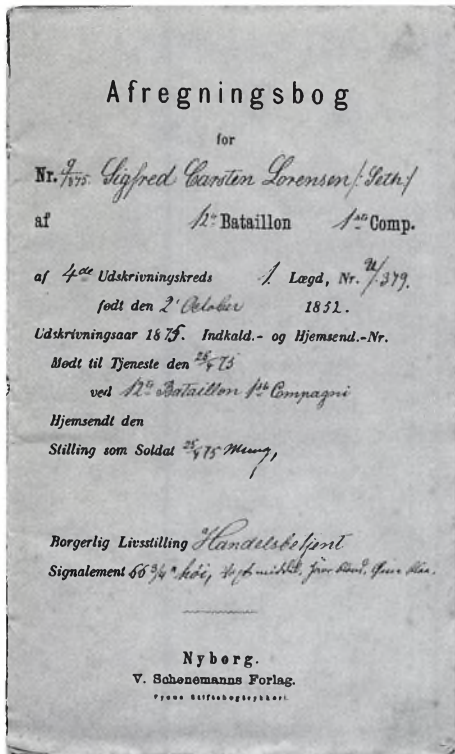 Afregningsbog
for
Nr. 9/1875. Sigfred Carsten Lorensen /: Seth /
af 12te Bataillon 1ste Comp.
af 4de Udskrivningskreds 1. Lægd, Nr. 379.
født den 2' October 1852.
Udskrivningsaar 1875. Indkald.- og Hjemsend.-Nr.
Mødt til Tjeneste den 75
ved 12te Bataillon 1ste Compagni
Hjemsendt den
Stilling som Soldat 75
Borgerlig Livsstilling Handelsbetjent
Signalement 66 3/4" høi,
Nyborg.
V. Schønemanns Forlag.
Fyens Stiftsbogtrykkeri.